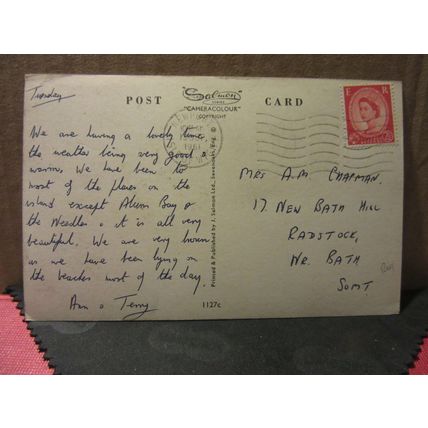 Tuesday
POST CARD
Salmon
SERIES
"CAMERACOLOUR"
COPYRIGHT
We are having a lovely time,
the weather being very good &
warm. We have been to
most of the places on the
island except Alum Bay &
the Needles & it is all very
beautiful. We are very brown
as we have been lying on
the beaches most of the day.
Ann & Terry
Printed & Published by J. Salmon Ltd., Sevenoaks, Eng. ©
1127c
E R
NEWPORT
1961
MRS A.M. CHAPMAN.
17. NEW BATH HILL
RADSTOCK,
NR. BATH
SOMT